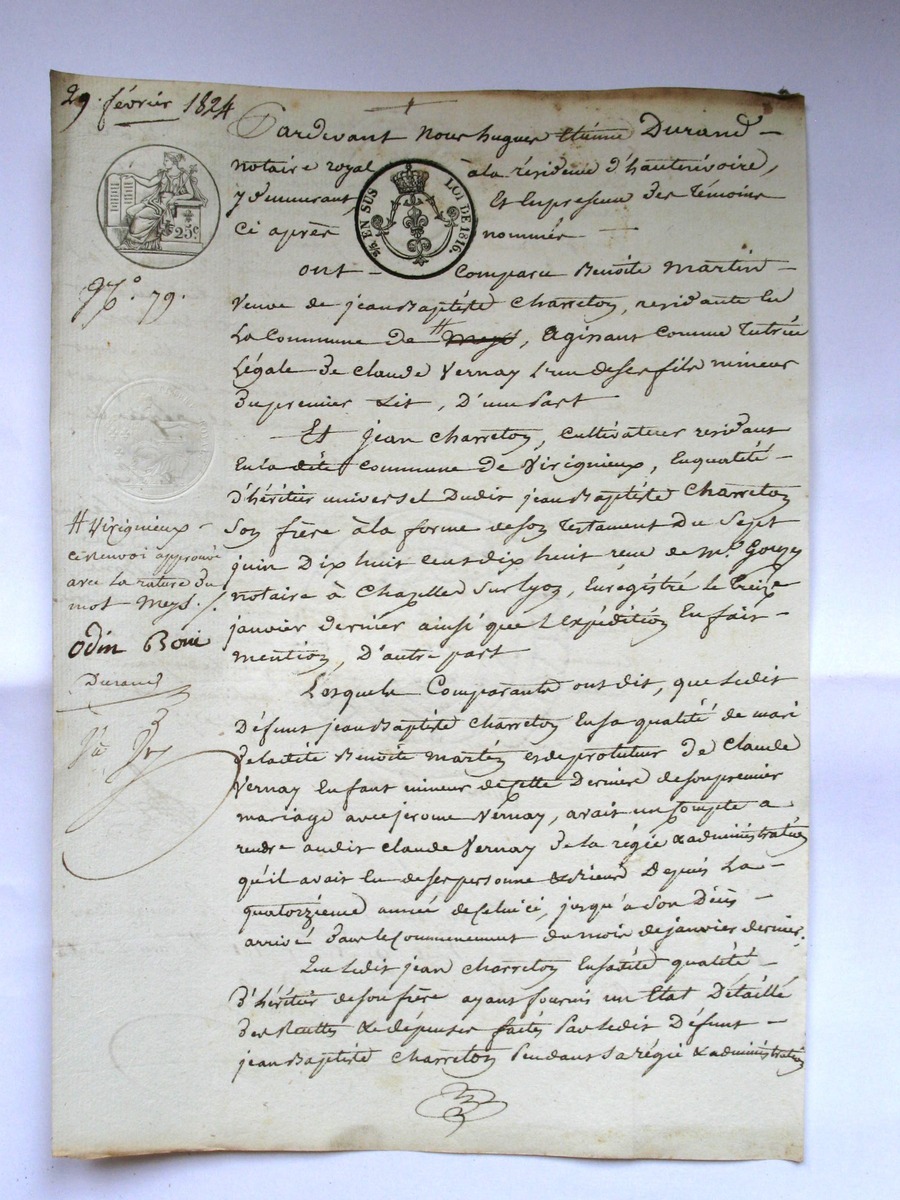 29. février 1824
Pardevant Nous hugues Etienne Durand -
notaire royal à la résidence d'hauterivoire,
y demeurant, Et En presence des témoins
Ci après nommés -
25c.
2/10 EN SUS LOI DE 1816.
No. 79.
ont - Comparu Benoite Martin -
Veuve de jean Baptiste Charreton, residante En
La Commune de # Meys, Agissant Comme Tutrice
Légale de Claude Vernay l'un de ses fils mineur
du premier Lit, D'une Part
Et jean Charreton, Cultivateur residant
En la dite Commune de Virignieux, En qualité -
d'héritier universel Dudit jean Baptiste Charreton
# Virignieux -
ce renvoi approuvé
avec la rature du
mot Meys. /.
Odin Boni
Durand
Son frère à la forme de son Testament du Sept
juin Dix huit cent dix huit reçu de Me.
notaire à Chazelle Sur lyon, Enregistré le treize
janvier dernier ainsi que l'Expédition En fait -
mention, D'autre part
Lesquels Comparants ont dit, que Ledit
Défunt jean Baptiste Charreton En sa qualité de mari
de ladite Benoite Martin et de protuteur de Claude
Vernay Enfant mineur de Cette Dernière de son premier
mariage avec jerome Vernay, avait un Compte a
rendre audit Claude Vernay de la régie & administration
qu'il avait Eu de ses personne & biens Depuis La -
quatorzième année de Celui ci, jusqu'a Son Décès
arrivé dans le Commencement du mois de janvier dernier.
Que Ledit jean Charreton En sa dite qualité -
d'héritier de son frère ayant fourni un Etat Détaillé
des Recettes & dépenses faites Par Ledit Défunt -
jean Baptiste Charreton Pendant Sa régie & administration